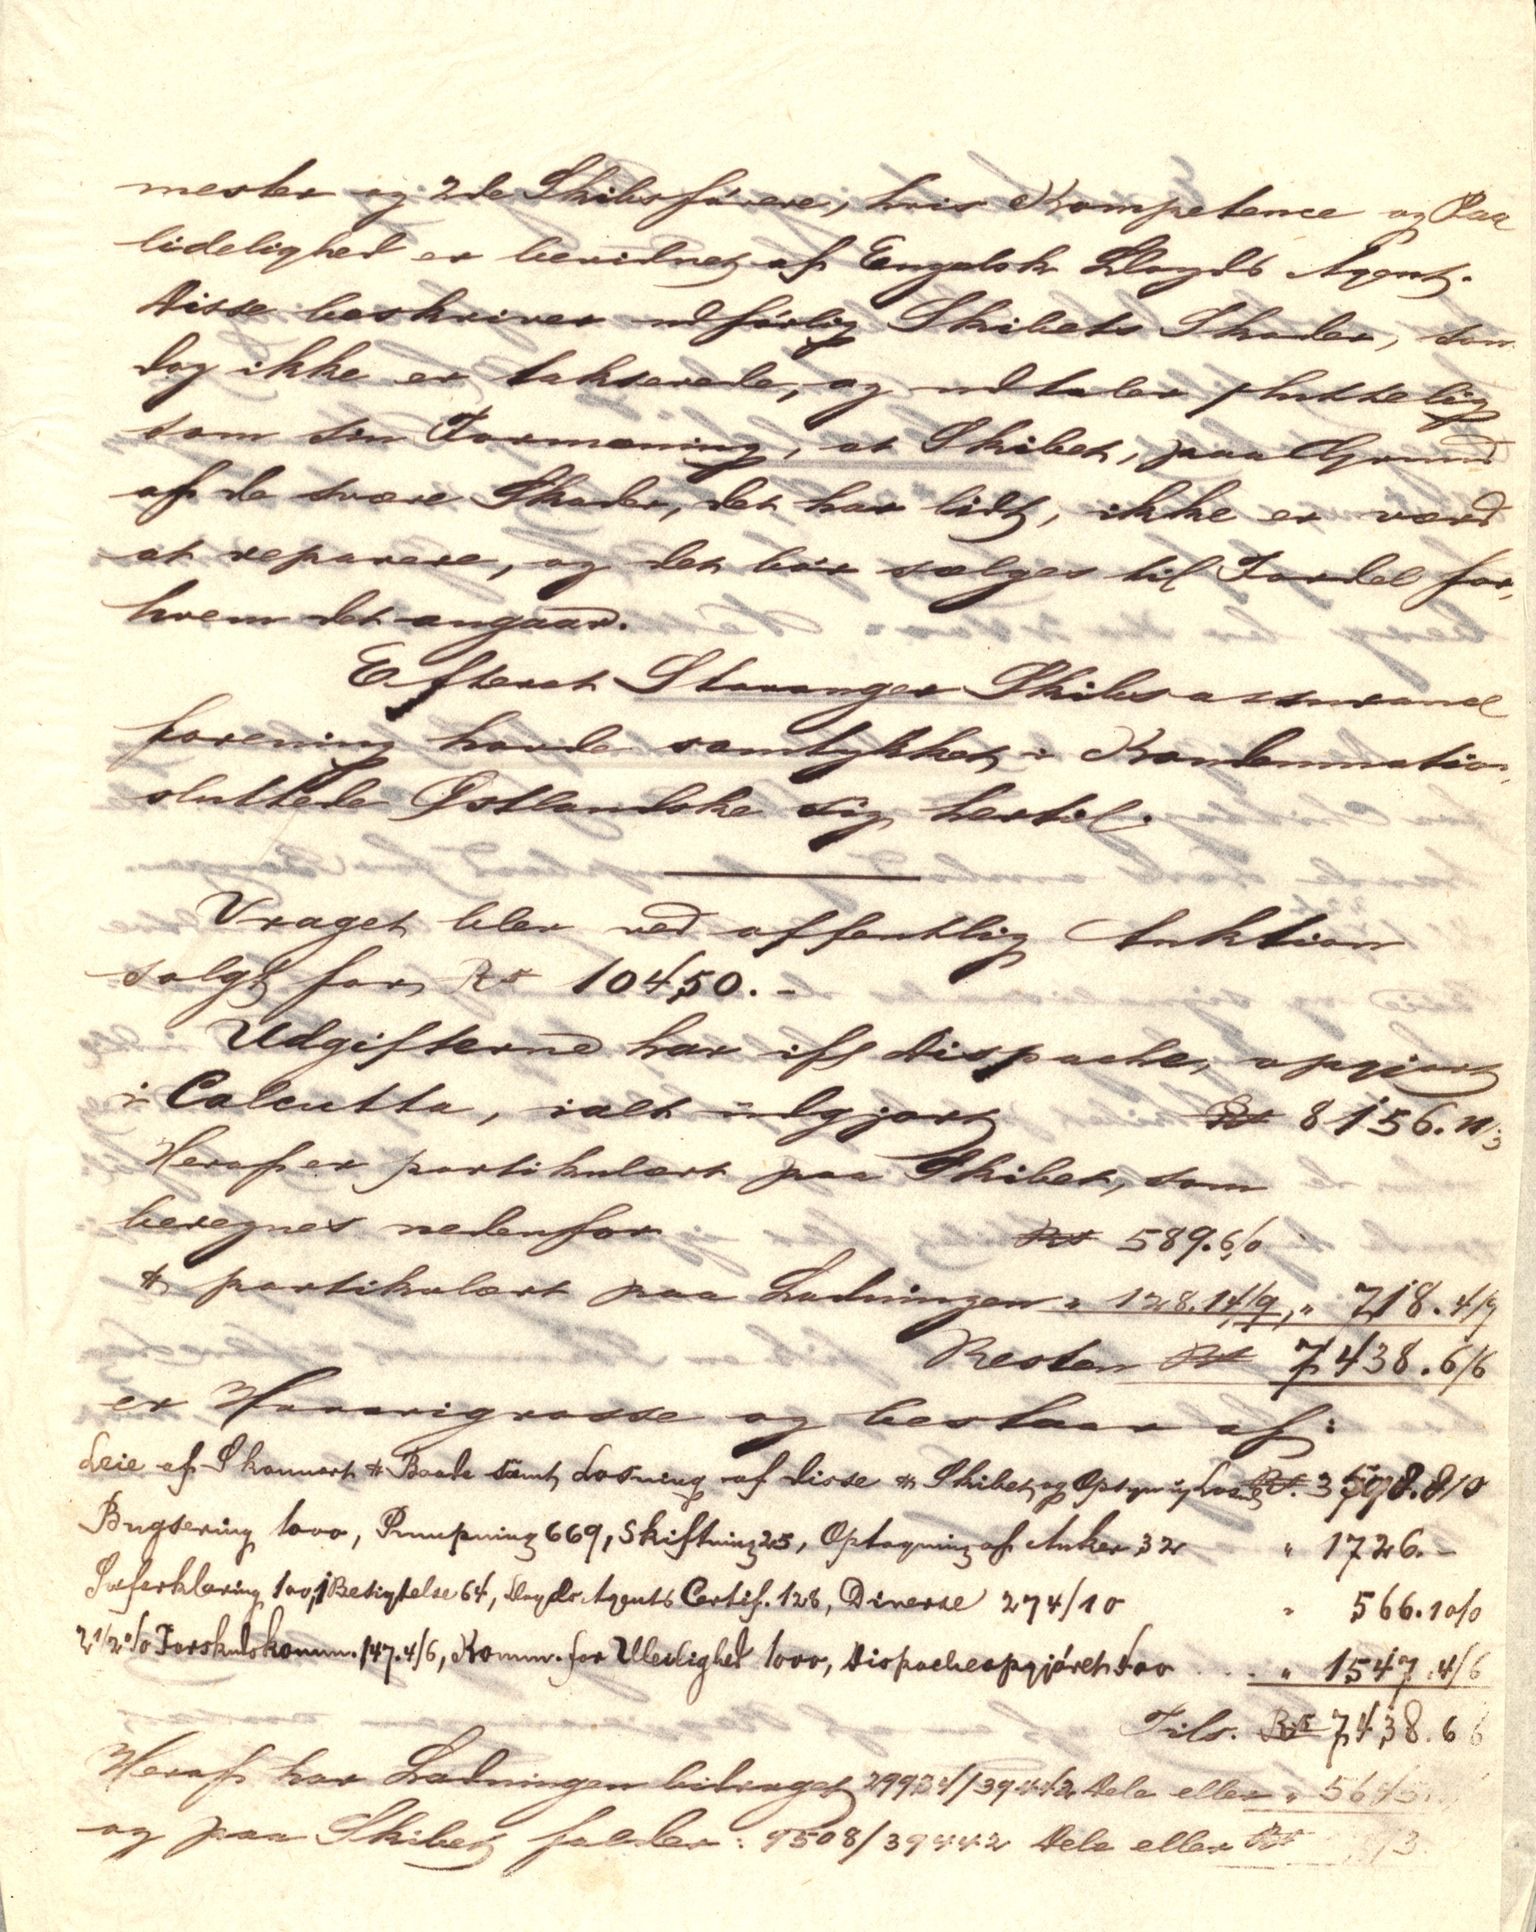 mester og 2de Skibsførere, hvis Kompetence og Paa
lidelighed er bevidnet af Engelsk Lloyds Agent.
Disse beskriver udførlig Skibets Skader, som
dog ikke er takserede, og udtaler sluttelig
som sin Formening, at Skibet, paa Grund
af de svære Skader, det har lidt, ikke er værd
at reparere, og det bør sælges til Fordel for,
hvem det angaar.
Efterat Stavanger Skibsassurance
forening havde samtykket i Kondemnation,
sluttede Østlandske sig hertil.
Vraget blev ved offentlig Auktion
solgt for Rs 10450.-
Udgifterne har ifl Dispache, opgjort
i Calcutta, ialt udgjort Rs 8156.11/3
Heraf er partikulært paa Skibet, som
beregnes nedenfor Rs 589.6/0
& partikulært paa Ladningen " 128.14/9, " 718.4/9
Resten Rs 7438.6/6
er Havarigrosse og bestaar af:
Leie af Skonnert & Baade samt Losning af disse & Skibet og Rs. 3598.8/0
Bugsering 1000, Pumpning 669, Skiftning 25, Optagning af Anker 32 " 1726.-
Søforklaring 100, Besigtelse 64, Lloyds Agents Certif. 128, Diverse 274/10 " 566.10/0
2 1/2 % Forskudskomm. 147.4/6, Komm. for Uleilighed 1000, Dispacheopgjøret 400 .... " 1547.4/6
Tils. Rs 7438.6/6
Heraf har Ladningen bidraget 29934/39442 Dele eller " 5645
og paa Skibet falder: 9508/39442 Dele eller Rs